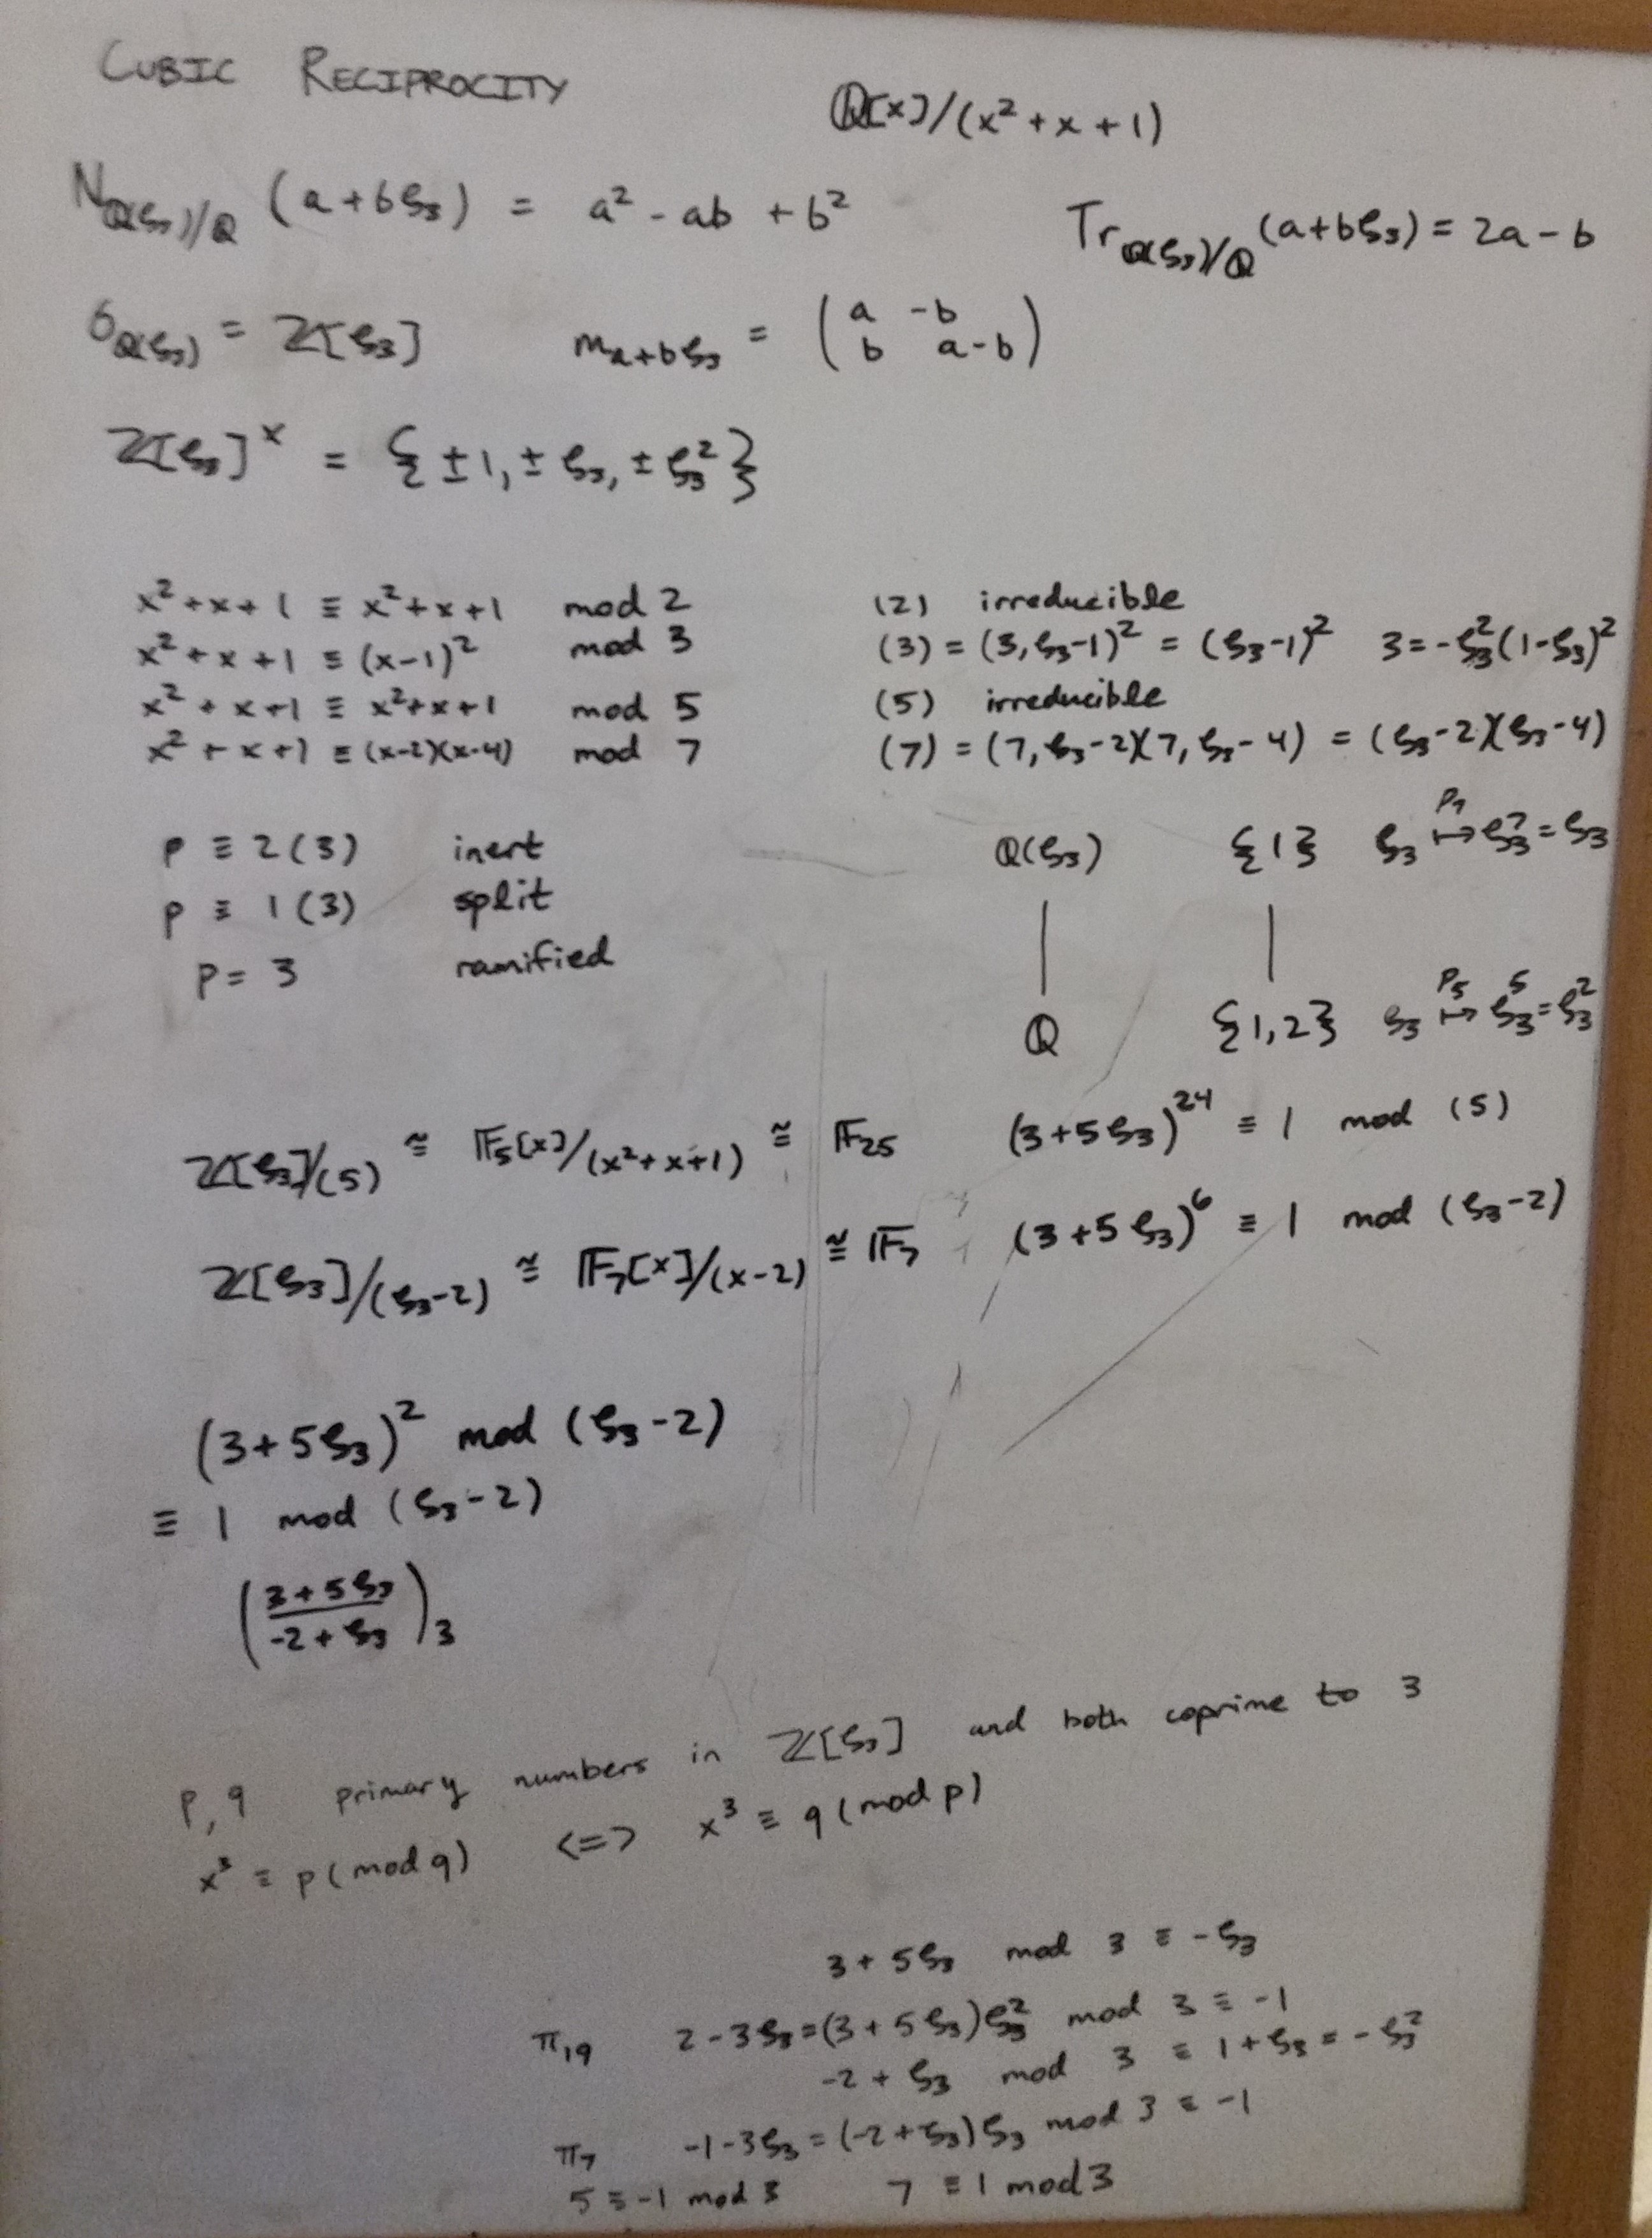 CUBIC RECIPROCITY
ℚ[x]/(x² + x + 1)
N_{ℚ(ζ₃)/ℚ} (a + bζ₃) = a² - ab + b²
Tr_{ℚ(ζ₃)/ℚ} (a+bζ₃) = 2a - b
𝒪_{ℚ(ζ₃)} = ℤ[ζ₃]
m_{a+bζ₃} = ( a -b
b a-b )
ℤ[ζ₃]^× = { ±1, ± ζ₃, ± ζ₃² }
x² + x + 1 ≡ x² + x + 1 mod 2
(2) irreducible
x² + x + 1 ≡ (x-1)² mod 3
(3) = (3, ζ₃-1)² = (ζ₃-1)² 3 = -ζ₃²(1-ζ₃)²
x² + x + 1 ≡ x² + x + 1 mod 5
(5) irreducible
x² + x + 1 ≡ (x-2)(x-4) mod 7
(7) = (7, ζ₃-2)(7, ζ₃-4) = (ζ₃-2)(ζ₃-4)
p ≡ 2 (3) inert
p ≡ 1 (3) split
p = 3 ramified
ℚ(ζ₃) {1} ζ₃ ↦^{P₇} ζ₃⁷ = ζ₃
ℚ {1,2} ζ₃ ↦^{P₅} ζ₃⁵ = ζ₃²
ℤ[ζ₃]/(5) ≅ 𝔽₅[x]/(x²+x+1) ≅ 𝔽₂₅
(3+5ζ₃)²⁴ ≡ 1 mod (5)
ℤ[ζ₃]/(ζ₃-2) ≅ 𝔽₇[x]/(x-2) ≅ 𝔽₇
(3+5ζ₃)⁶ ≡ 1 mod (ζ₃-2)
(3+5ζ₃)² mod (ζ₃-2)
≡ 1 mod (ζ₃-2)
( 3+5ζ₃ / -2+ζ₃ )₃
p, q primary numbers in ℤ[ζ₃] and both coprime to 3
x³ ≡ p (mod q) <=> x³ ≡ q (mod p)
3 + 5ζ₃ mod 3 ≡ -ζ₃
π₁₉ 2-3ζ₃ = (3+5ζ₃)ζ₃² mod 3 ≡ -1
-2 + ζ₃ mod 3 ≡ 1+ζ₃ = -ζ₃²
π₇ -1-3ζ₃ = (-2+ζ₃)ζ₃ mod 3 ≡ -1
5 ≡ -1 mod 3 7 ≡ 1 mod 3